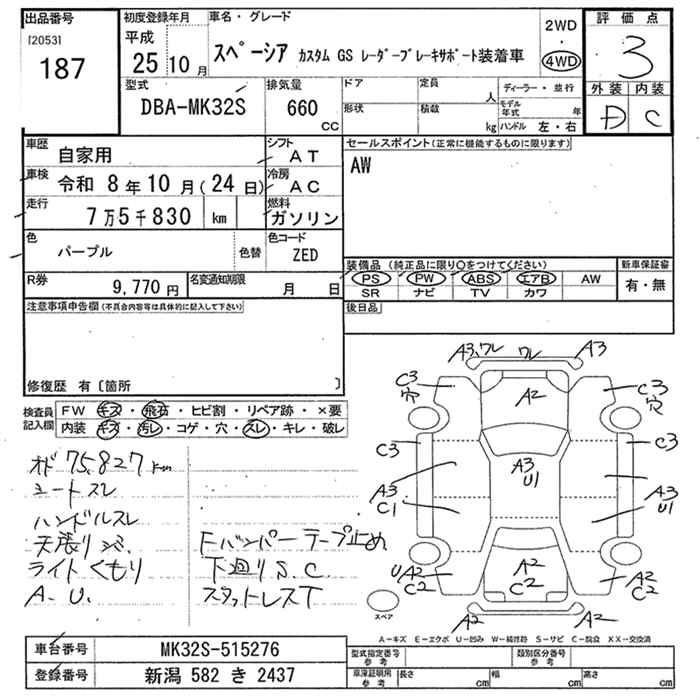 出品番号
[2053]
187
初度登録年月
平成
25 10 月
車名・グレード
スペーシア カスタム GS レーダーブレーキサポート装着車
2WD
・
4WD
評価点
3
外装 内装
D C
型式
DBA-MK32S
排気量
660
CC
ドア
形状
定員
人
積載
kg
ディーラー・並行
モデル年式 年
ハンドル 左・右
車歴
自家用
シフト
AT
車検
令和 8年 10月(24日)
冷房
AC
走行
7万5千830 km
燃料
ガソリン
色
パープル
色替
色コード
ZED
R券
9,770 円
名変通知期限
月 日
セールスポイント(正常に機能するものに限ります)
AW
装備品 (純正品に限り○をつけてください)
PS PW ABS エアB AW
SR ナビ TV カワ
新車保証書
有・無
後日品
注意事項申告欄(不具合内容等は具体的に記入して下さい)
修復歴 有〔箇所 〕
検査員記入欄
FW キズ・飛石・ヒビ割・リペア跡・×要
内装 キズ・汚レ・コゲ・穴・スレ・キレ・破レ
オド 75,827 km
シートスレ
ハンドルスレ
天張り
ライトくもり
A.U.
Fバンパーテープ止め
下回りS.C.
スタットレスT
A3,ワレ ワレ A3
C3 穴
A2
C3 穴
C3
C3
A3 U1
A3 C1
A3 U1
UA2 C2
A2 C2
A2 C2
A2
A2
スペア
A-キズ E-エクボ U-凹み W-補修跡 S-サビ C-腐食 XX-交換済
車台番号
MK32S-515276
登録番号
新潟 582 き 2437
型式指定番号
参考
類別区分番号
参考
車庫証明用
参考
長さ cm
幅 cm
高さ cm